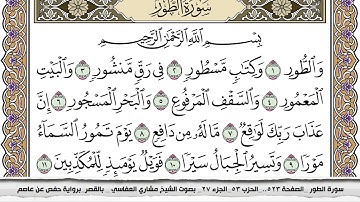 سُورَةُ الطُّورِ
بِسْمِ اللَّهِ الرَّحْمَٰنِ الرَّحِيمِ
وَالطُّورِ ١ وَكِتَابٍ مَّسْطُورٍ ٢ فِي رَقٍّ مَّنشُورٍ ٣ وَالْبَيْتِ
الْمَعْمُورِ ٤ وَالسَّقْفِ الْمَرْفُوعِ ٥ وَالْبَحْرِ الْمَسْجُورِ ٦ إِنَّ
عَذَابَ رَبِّكَ لَوَاقِعٌ ٧ مَّا لَهُ مِن دَافِعٍ ٨ يَوْمَ تَمُورُ السَّمَاءُ
مَوْرًا ٩ وَتَسِيرُ الْجِبَالُ سَيْرًا ١٠ فَوَيْلٌ يَوْمَئِذٍ لِّلْمُكَذِّبِينَ ١١
سورة الطور - الصفحة ٥٢٣.. الحزب ٥٣ .الجزء ٢٧ . بصوت الشيخ مشاري العفاسي . بالقصر برواية حفص عن عاصم